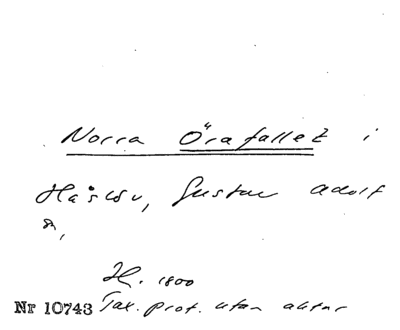 Norra Örafallet i
Håslöv, Gustav Adolf
sn,
H. 1800
Nr 10743 Tax. prot. utan aktnr